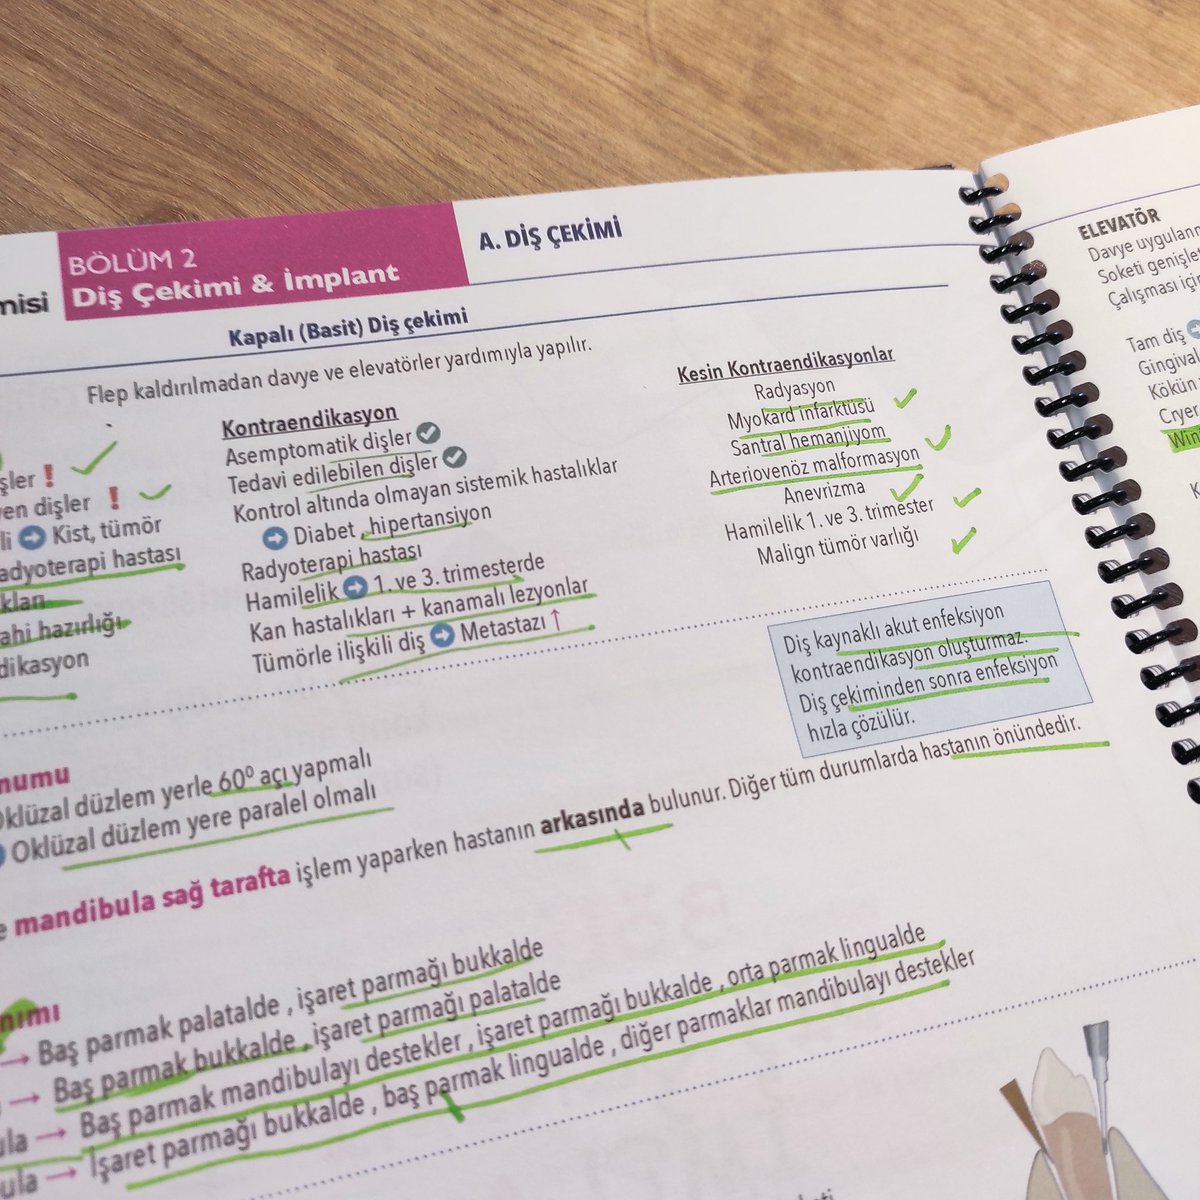 misi
BÖLÜM 2
Diş Çekimi & İmplant
A. DİŞ ÇEKİMİ
Kapalı (Basit) Diş çekimi
Flep kaldırılmadan davye ve elevatörler yardımıyla yapılır.
şler
en dişler
li Kist, tümör
adyoterapi hastası
kları
ahi hazırlığı
dikasyon
Kontraendikasyon
Asemptomatik dişler
Tedavi edilebilen dişler
Kontrol altında olmayan sistemik hastalıklar
Diabet , hipertansiyon
Radyoterapi hastası
Hamilelik 1. ve 3. trimesterde
Kan hastalıkları + kanamalı lezyonlar
Tümörle ilişkili diş Metastazı ↑
Kesin Kontraendikasyonlar
Radyasyon
Myokard infarktüsü
Santral hemanjiyom
Arteriovenöz malformasyon
Anevrizma
Hamilelik 1. ve 3. trimester
Malign tümör varlığı
Diş kaynaklı akut enfeksiyon
kontraendikasyon oluşturmaz.
Diş çekiminden sonra enfeksiyon
hızla çözülür.
numu
Oklüzal düzlem yerle 60⁰ açı yapmalı
Oklüzal düzlem yere paralel olmalı
e mandibula sağ tarafta işlem yaparken hastanın arkasında bulunur. Diğer tüm durumlarda hastanın önündedir.
nımı
→ Baş parmak palatalde , işaret parmağı bukkalde
→ Baş parmak bukkalde , işaret parmağı palatalde
ula → Baş parmak mandibulayı destekler , işaret parmağı bukkalde , orta parmak lingualde
ula → İşaret parmağı bukkalde , baş parmak lingualde , diğer parmaklar mandibulayı destekler
ELEVATÖR
Davye uygulanm
Soketi genişlet
Çalışması için
Tam diş
Gingival
Kökün
Cryer
Win